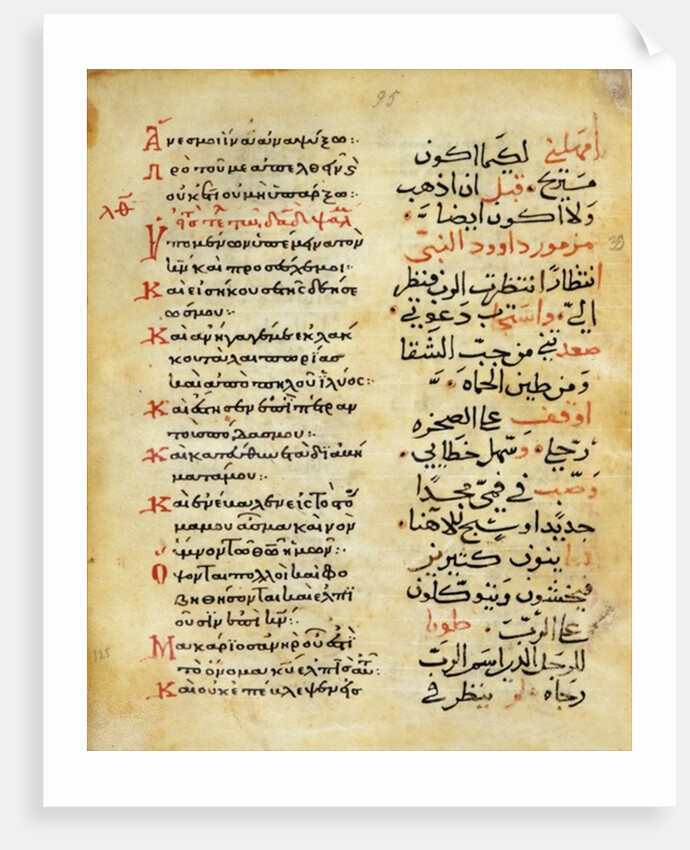 95
Ἄνες μοι ἵνα ἀναψύξω:·
Πρὸ τοῦ με ἀπελθεῖν ϗ
οὐκέτι οὐ μὴ ὑπάρξω:·
λθ
Εἰς τὸ τέ τῶ δαδ ψαλ
Ὑπομένων ὑπέμεινα τὸν
κν καὶ προσέσχε μοι:·
Καὶ εἰσήκουσε τῆς δεήσε
ώς μου:·
Καὶ ἀνήγαγέ με ἐκ λάκ
κου ταλαιπωρίας
καὶ ἀπὸ πηλοῦ ἰλύος:·
Καὶ ἔστησεν ἐπὶ πέτραν
τοὺς πόδας μου:·
Καὶ κατεύθυνε τὰ διαβή
ματά μου:·
Καὶ ἐνέβαλεν εἰς τὸ στό
μα μου ᾆσμα καινόν
ὕμνον τῶ θῶ ἡμῶν:·
Ὄψονται πολλοὶ καὶ φο
βηθήσονται καὶ ἐλπι
οῦσιν ἐπὶ κν:·
Μακάριος ἀνὴρ οὗ ἐστι
τὸ ὄνομα κυ ἐλπὶς αὐτοῦ:·
Καὶ οὐκ ἐπέβλεψεν εἰς
125
امهلني لكيما اكون
مستريح. قبل ان اذهب
ولا اكون ايضا
مزمور داوود النبي
39
انتظارًا انتظرت الرب فنظر
الي. واستجاب دعوتي.
صعدني من جب الشقا
ومن طين الحماه.
اوقف على الصخره
رجلي. وسهل خطاي.
وصب في فمي مجدًا
جديدًا وتسبيح لالاهنا.
ينون كثيرين
فيخشون ويتوكلون
على الرب. طوبا
للرجل الذي اسم الرب
رجاه. ينظر في